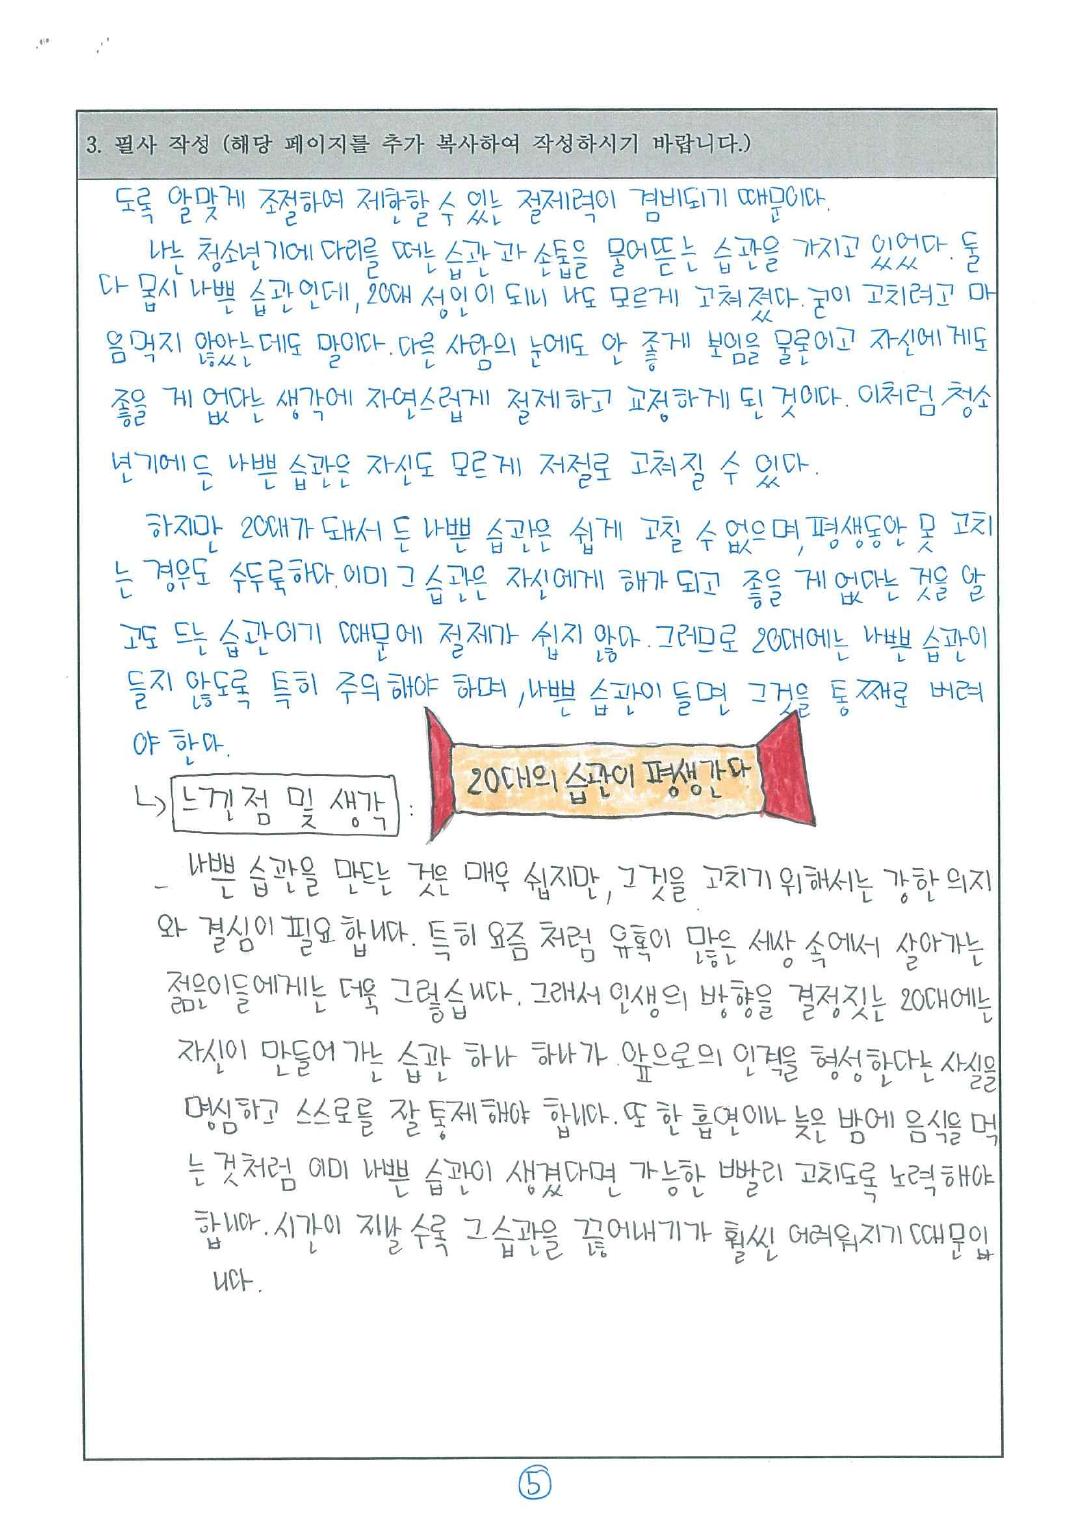 3. 필사 작성 (해당 페이지를 추가 복사하여 작성하시기 바랍니다.)
도록 알맞게 조절하여 제한할 수 있는 절제력이 겸비되기 때문이다.
나는 청소년기에 다리를 떠는 습관과 손톱을 물어뜯는 습관을 가지고 있었다. 둘
다 몹시 나쁜 습관인데, 20대 성인이 되니 나도 모르게 고쳐졌다. 굳이 고치려고 마
음먹지 않았는데도 말이다. 다른 사람의 눈에도 안 좋게 보임을 물론이고 자신에게도
좋을 게 없다는 생각에 자연스럽게 절제하고 교정하게 된 것이다. 이처럼 청소
년기에 든 나쁜 습관은 자신도 모르게 저절로 고쳐질 수 있다.
하지만 20대가 돼서 든 나쁜 습관은 쉽게 고칠 수 없으며, 평생동안 못 고치
는 경우도 수두룩하다. 이미 그 습관은 자신에게 해가 되고 좋을 게 없다는 것을 알
고도 드는 습관이기 때문에 절제가 쉽지 않다. 그러므로 20대에는 나쁜 습관이
들지 않도록 특히 주의해야 하며, 나쁜 습관이 들면 그것을 통째로 버려
야 한다.
20대의 습관이 평생간다
↳ 느낀점 및 생각 :
- 나쁜 습관을 만드는 것은 매우 쉽지만, 그것을 고치기 위해서는 강한 의지
와 결심이 필요합니다. 특히 요즘처럼 유혹이 많은 세상 속에서 살아가는
젊은이들에게는 더욱 그렇습니다. 그래서 인생의 방향을 결정짓는 20대에는
자신이 만들어 가는 습관 하나 하나가 앞으로의 인격을 형성한다는 사실을
명심하고 스스로를 잘 통제해야 합니다. 또 한 흡연이나 늦은 밤에 음식을 먹
는 것처럼 이미 나쁜 습관이 생겼다면 가능한 빨리 고치도록 노력해야
합니다. 시간이 지날 수록 그 습관을 끊어내기가 훨씬 어려워지기 때문입
니다.
5